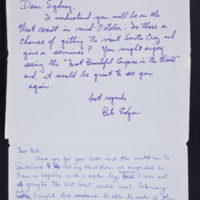 Dear Sydney,
I understand you will be on the
West coast in mid October. Is there a
chance of getting to visit Santa Cruz and
give a seminar? You might enjoy
seeing the "most Beautiful Campus in the World"
and it would be great to see you
again.
best regards
Bob Edgar
Dear Bob,
Thank you for your letter and the invitation to
Santa Cruz.
I am in hospital with a broken leg I was not
going to the West Coast until next February